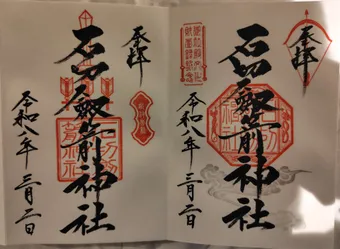 奉拝
石切劔箭神社
令和八年 三月二日
奉拝
石切劔箭神社
令和八年 三月二日